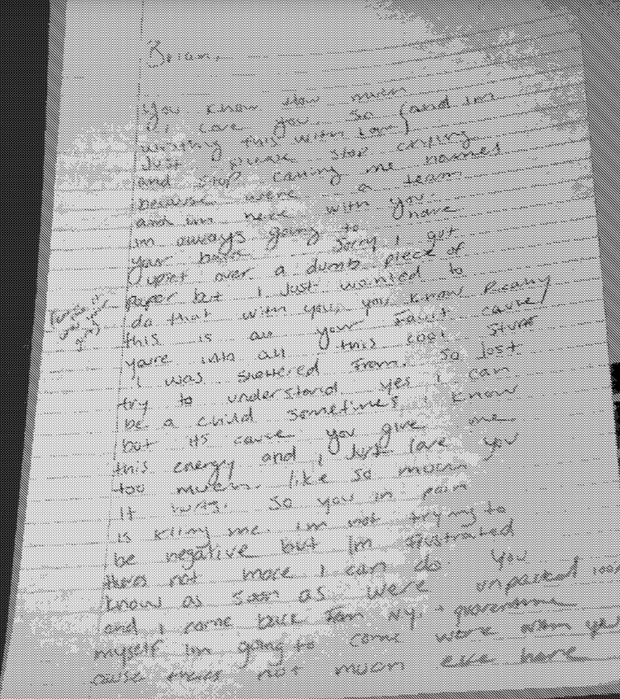 Brian,
You know how much
i love you. So (and im
writing this with love)
Just please stop crying
and stop calling me names
because were a team
and im here with you.
im always going to have
your back. Sorry i got
upset over a dumb piece of
paper but i just wanted to
do that with you, you know Really
this is all your fault cause
youre into all this cool stuff
i was sheltered from. So Just
try to understand yes i can
be a child sometimes, i know
but its cause you give me
this energy and i Just love you
too much. like so much
it hurts. So you in pain
is killing me. im not trying to
be negative but Im frustrated
theres not more i can do. You
know as soon as were unpacked
and i come back from NY, + quarantine
myself im going to come work with you
cause theres not much else here